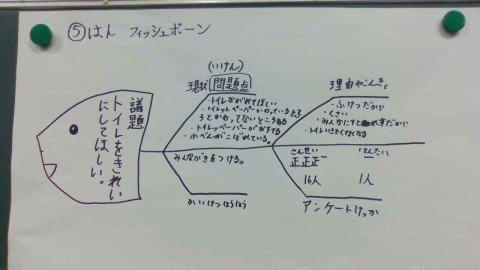 ⑤はん フィッシュボーン
議題
トイレをきれい
にしてほしい。
(いけん)
現状 問題点
・トイレながれてほしい
・トイレットペーパーがわっているとこ
・トイレッペーパーがおちてる
・小べんがこぼれている。
理由やこんきょ
・ふけつだから
・くさい
・みんなにすると
・トイレいきたくなくなる
みんながきをつける。
かいけつほうほう
さんせい
正正正一
16人
はんたい
一
1人
アンケートけっか